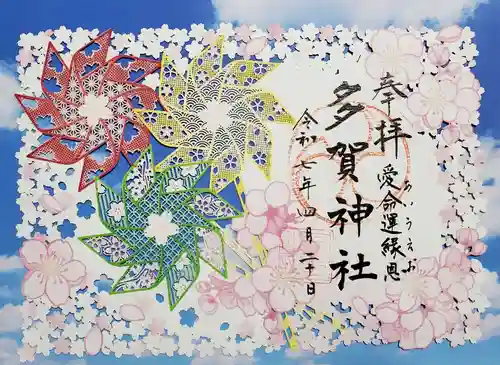 奉拝
愛命運縁恩
あいうえお
多賀神社
令和七年四月二十日